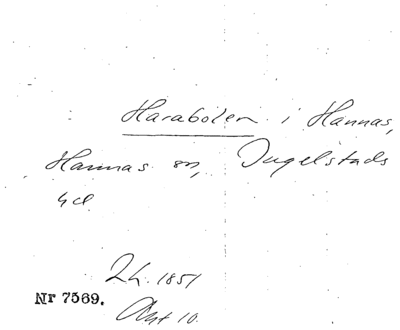 Haraboten i Hannas,
Hannas sn, Ingelstads
hd
2h. 1851
Nr 7569.
Akt 10.